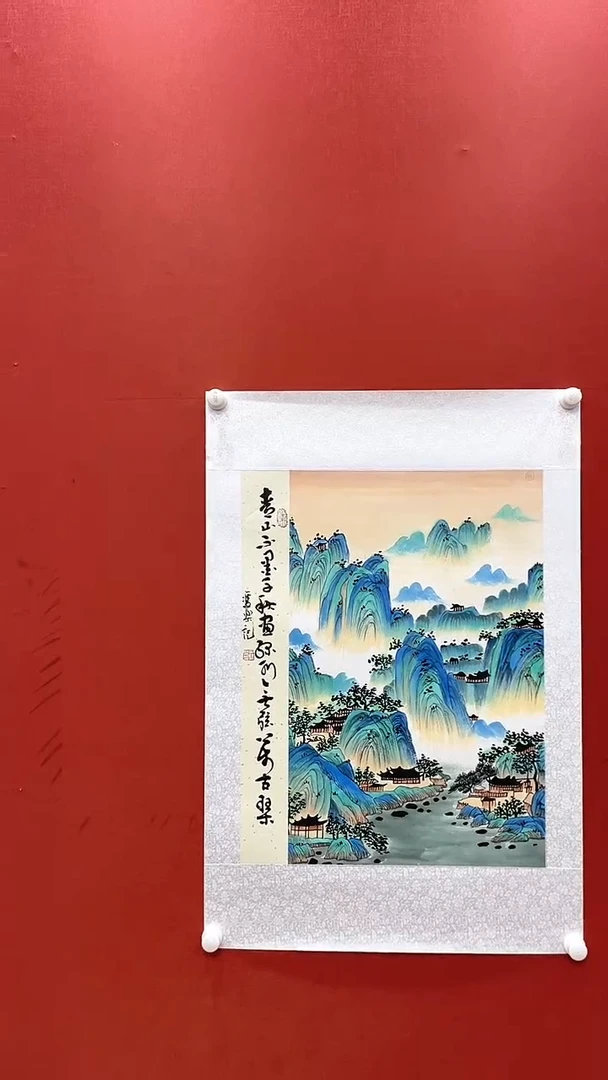 青山不墨千秋画绿水无弦万古琴
记